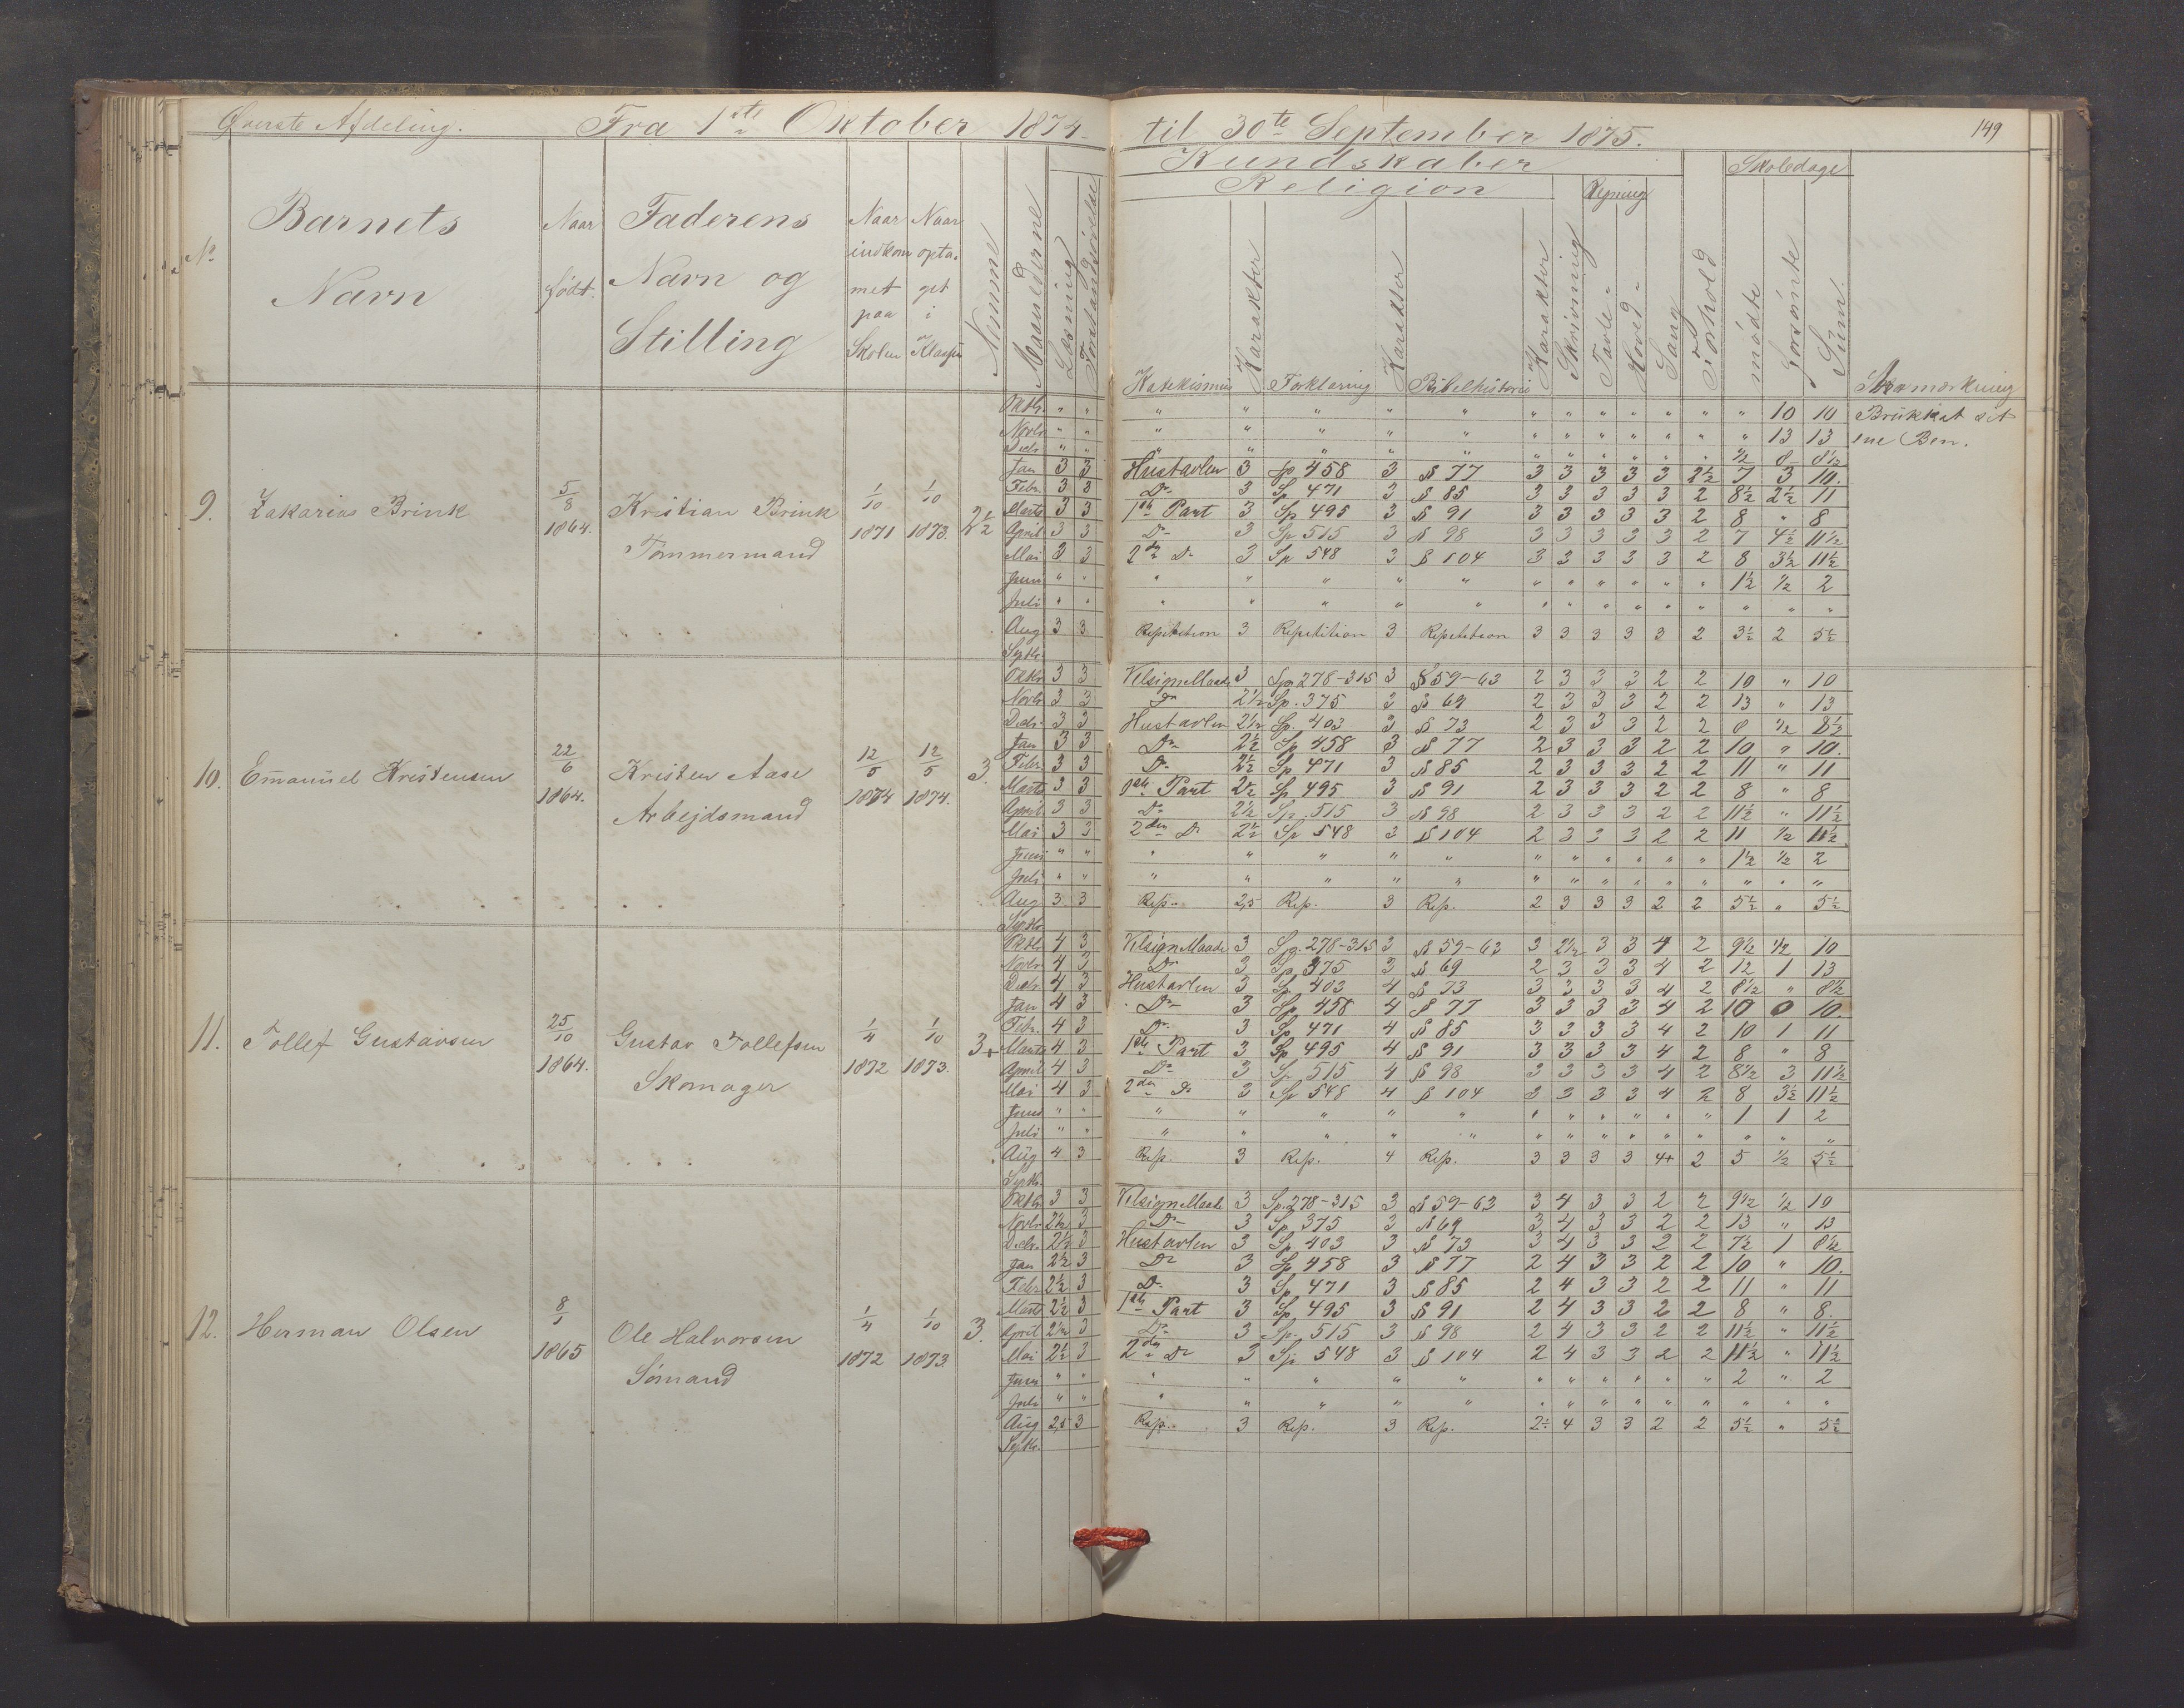 Øverste Afdeling. Fra 1ste Oktober 1874 til 30te September 1875. 149
Kundskaber Skoledage
Religion Regning
No Barnets Navn Naar født. Faderens Navn og Stilling Naar indkommet paa Skolen Naar optaget i Klassen Nemme Maanederne Læsning Forstandsøvelse Katekismus Karakter Forklaring Karakter Bibelhistorie Karakter Skrivning Tavle- Hoved- Sang Forhold mødte forsømte Sum. Anmærkning
9. Zakarias Brink 5/8 1864. Kristian Brink Tømmermand 1/10 1871 1/10 1873. 2½
Oktbr. " " " " " " " " " " " " " " " 10 10 Brukket sit
Novbr. " " " " " " " " " " " " " " " 13 13 ene Ben.
Decbr. " " " " " " " " " " " " " " ½ 8 8½
Jan 3 3 Hustavlen 3 Sp 458 3 § 77 3 3 3 3 3 2½ 7 3 10.
Febr. 3 3 Do 3 Sp 471 3 § 85 3 3 3 3 3 2 8½ 2½ 11
Marts 3 3 1ste Part 3 Sp 495 3 § 91 3 3 3 3 3 2 8 " 8
April 3 3 Do 3 Sp 515 3 § 98 3 3 3 3 3 2 7 4½ 11½
Mai 3 3 2den Do 3 Sp 548 3 § 104 3 3 3 3 3 2 8 3½ 11½
Juni " " " " " " " " " " " " " 1½ ½ 2
Juli " " " " " " " " " " " " " " " "
Aug 3 3 Repetition 3 Repetition 3 Repetition 3 3 3 3 3 2 3½ 2 5½
Septbr.
10. Emanuel Kristensen 22/6 1864. Kristen Aase Arbejdsmand 12/5 1874 12/5 1874. 3.
Oktbr 3 3 VelsigneMaade 3 Sp. 278-315 3 § 59-63 2 3 3 3 2 2 10 " 10
Novbr 3 3 Do 2½ Sp. 375 3 § 69 2 3 3 3 2 2 13 " 13
Decbr. 3 3 Hustavlen 2½ Sp. 403 3 § 73 2 3 3 3 2 2 8 ½ 8½
Jan 3 3 Do 2½ Sp 458 3 § 77 2 3 3 3 2 2 10 " 10.
Febr. 3 3 Do 2½ Sp 471 3 § 85 2 3 3 3 2 2 11 " 11
Marts 3 3 1ste Part 2½ Sp 495 3 § 91 2 3 3 3 2 2 8 " 8
April 3 3 Do 2½ Sp. 515 3 § 98 2 3 3 3 2 2 11½ " 11½
Mai 3 3 2den Do 2½ Sp 548 3 § 104 2 3 3 3 2 2 11 ½ 11½
Juni " " " " " " " " " " " " " 1½ ½ 2
Juli " " " " " " " " " " " " " " " "
Aug 3. 3 Rep. 2,5 Rep. 3 Rep. 2 3 3 3 2 2 5½ " 5½
Septbr.
11. Tollef Gustavsen 25/10 1864. Gustav Tollefsen Skomager 1/4 1872 1/10 1873. 3+
Oktbr. 4 3 VelsigneMaade 3 Sp. 278-315 3 § 59-63 3 2½ 3 3 4 2 9½ ½ 10
Novbr. 4 3 Do 3 Sp. 375 3 § 69 2 3 3 3 4 2 12 1 13
Decbr. 4 3 Hustavlen 3 Sp. 403 4 § 73 3 3 3 3 4 2 8½ " 8½
Jan 4 3 Do 3 Sp 458 4 § 77 3 3 3 3 4 2 10 0 10.
Febr. 4 3 Do 3 Sp 471 4 § 85 3 3 3 3 4 2 10 1 11
Marts 4 3 1ste Part 3 Sp 495 4 § 91 3 3 3 3 4 2 8 " 8
April 4 3 Do 3 Sp 515 4 § 98 3 3 3 3 4 2 8½ 3 11½
Mai 4 3 2den Do 3 Sp 548 4 § 104 3 3 3 3 4 2 8 3½ 11½
Juni " " " " " " " " " " " " " 1 1 2
Juli " " " " " " " " " " " " " " " "
Aug 4 3 Rep. 3 Rep. 4 Rep. 3 3 3 3 4+ 2 5 ½ 5½
Septbr.
12. Herman Olsen 8/1 1865 Ole Halvorsen Sømand 1/4 1872 1/10 1873. 3.
Oktbr 3 3 VelsigneMaade 3 Sp. 278-315 3 § 59-63 3 4 3 3 2 2 9½ ½ 10
Novbr. 2½ 3 Do 3 Sp 375 3 § 69 3 4 3 3 2 2 13 " 13
Decbr. 2½ 3 Hustavlen 3 Sp 403 3 § 73 3 4 3 3 2 2 7½ 1 8½
Jan 2½ 3 Do 3 Sp 458 3 § 77 2 4 3 3 2 2 10 " 10.
Febr 2½ 3 Do 3 Sp 471 3 § 85 2 4 3 3 2 2 11 " 11
Marts 2½ 3 1ste Part 3 Sp 495 3 § 91 2 4 3 3 2 2 8 " 8.
April 2½ 3 Do 3 Sp. 515 3 § 98 2 4 3 3 2 2 11½ " 11½
Mai 2½ 3 2den Do 3 Sp 548 3 § 104 2 4 3 3 2 2 11½ " 11½
Juni " " " " " " " " " " " " " 2 " 2
Juli " " " " " " " " " " " " " " " "
Aug 2,5 3 Rep. 3 Rep. 3 Rep. 2÷ 4 3 3 2 2 5½ " 5½
Septbr.